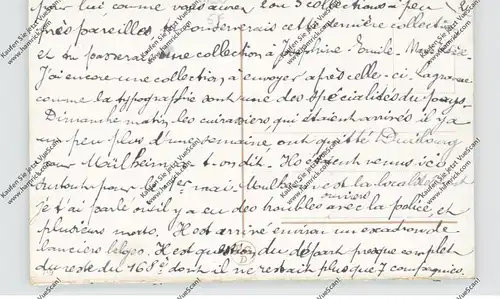 pour lui comme vous aurez 2 ou 3 collections à peu
près pareilles. Tu conserverais cette dernière collection
et tu passerais une collection à Joséphine - Emile -
J'ai encore une collection à envoyer après celle-ci. La gravure
comme la typographie sont une des spécialités du pays.
Dimanche matin, les cuirassiers qui étaient arrivés il y a
un peu plus d'une semaine, ont quitté Duisbourg
pour Mülheim a-t-on dit. Ils étaient venus ici
surtout pour le 1er mai. Mülheim est la localité dont
je t'ai parlé où il y a eu des troubles avec la police, et
plusieurs morts. Il est arrivé environ un escadron de
lanciers belges. Il est question du départ presque complet
du reste du 168e dont il ne restait plus que 7 compagnies.
Kaufen Sie jetzt bei VueScan!